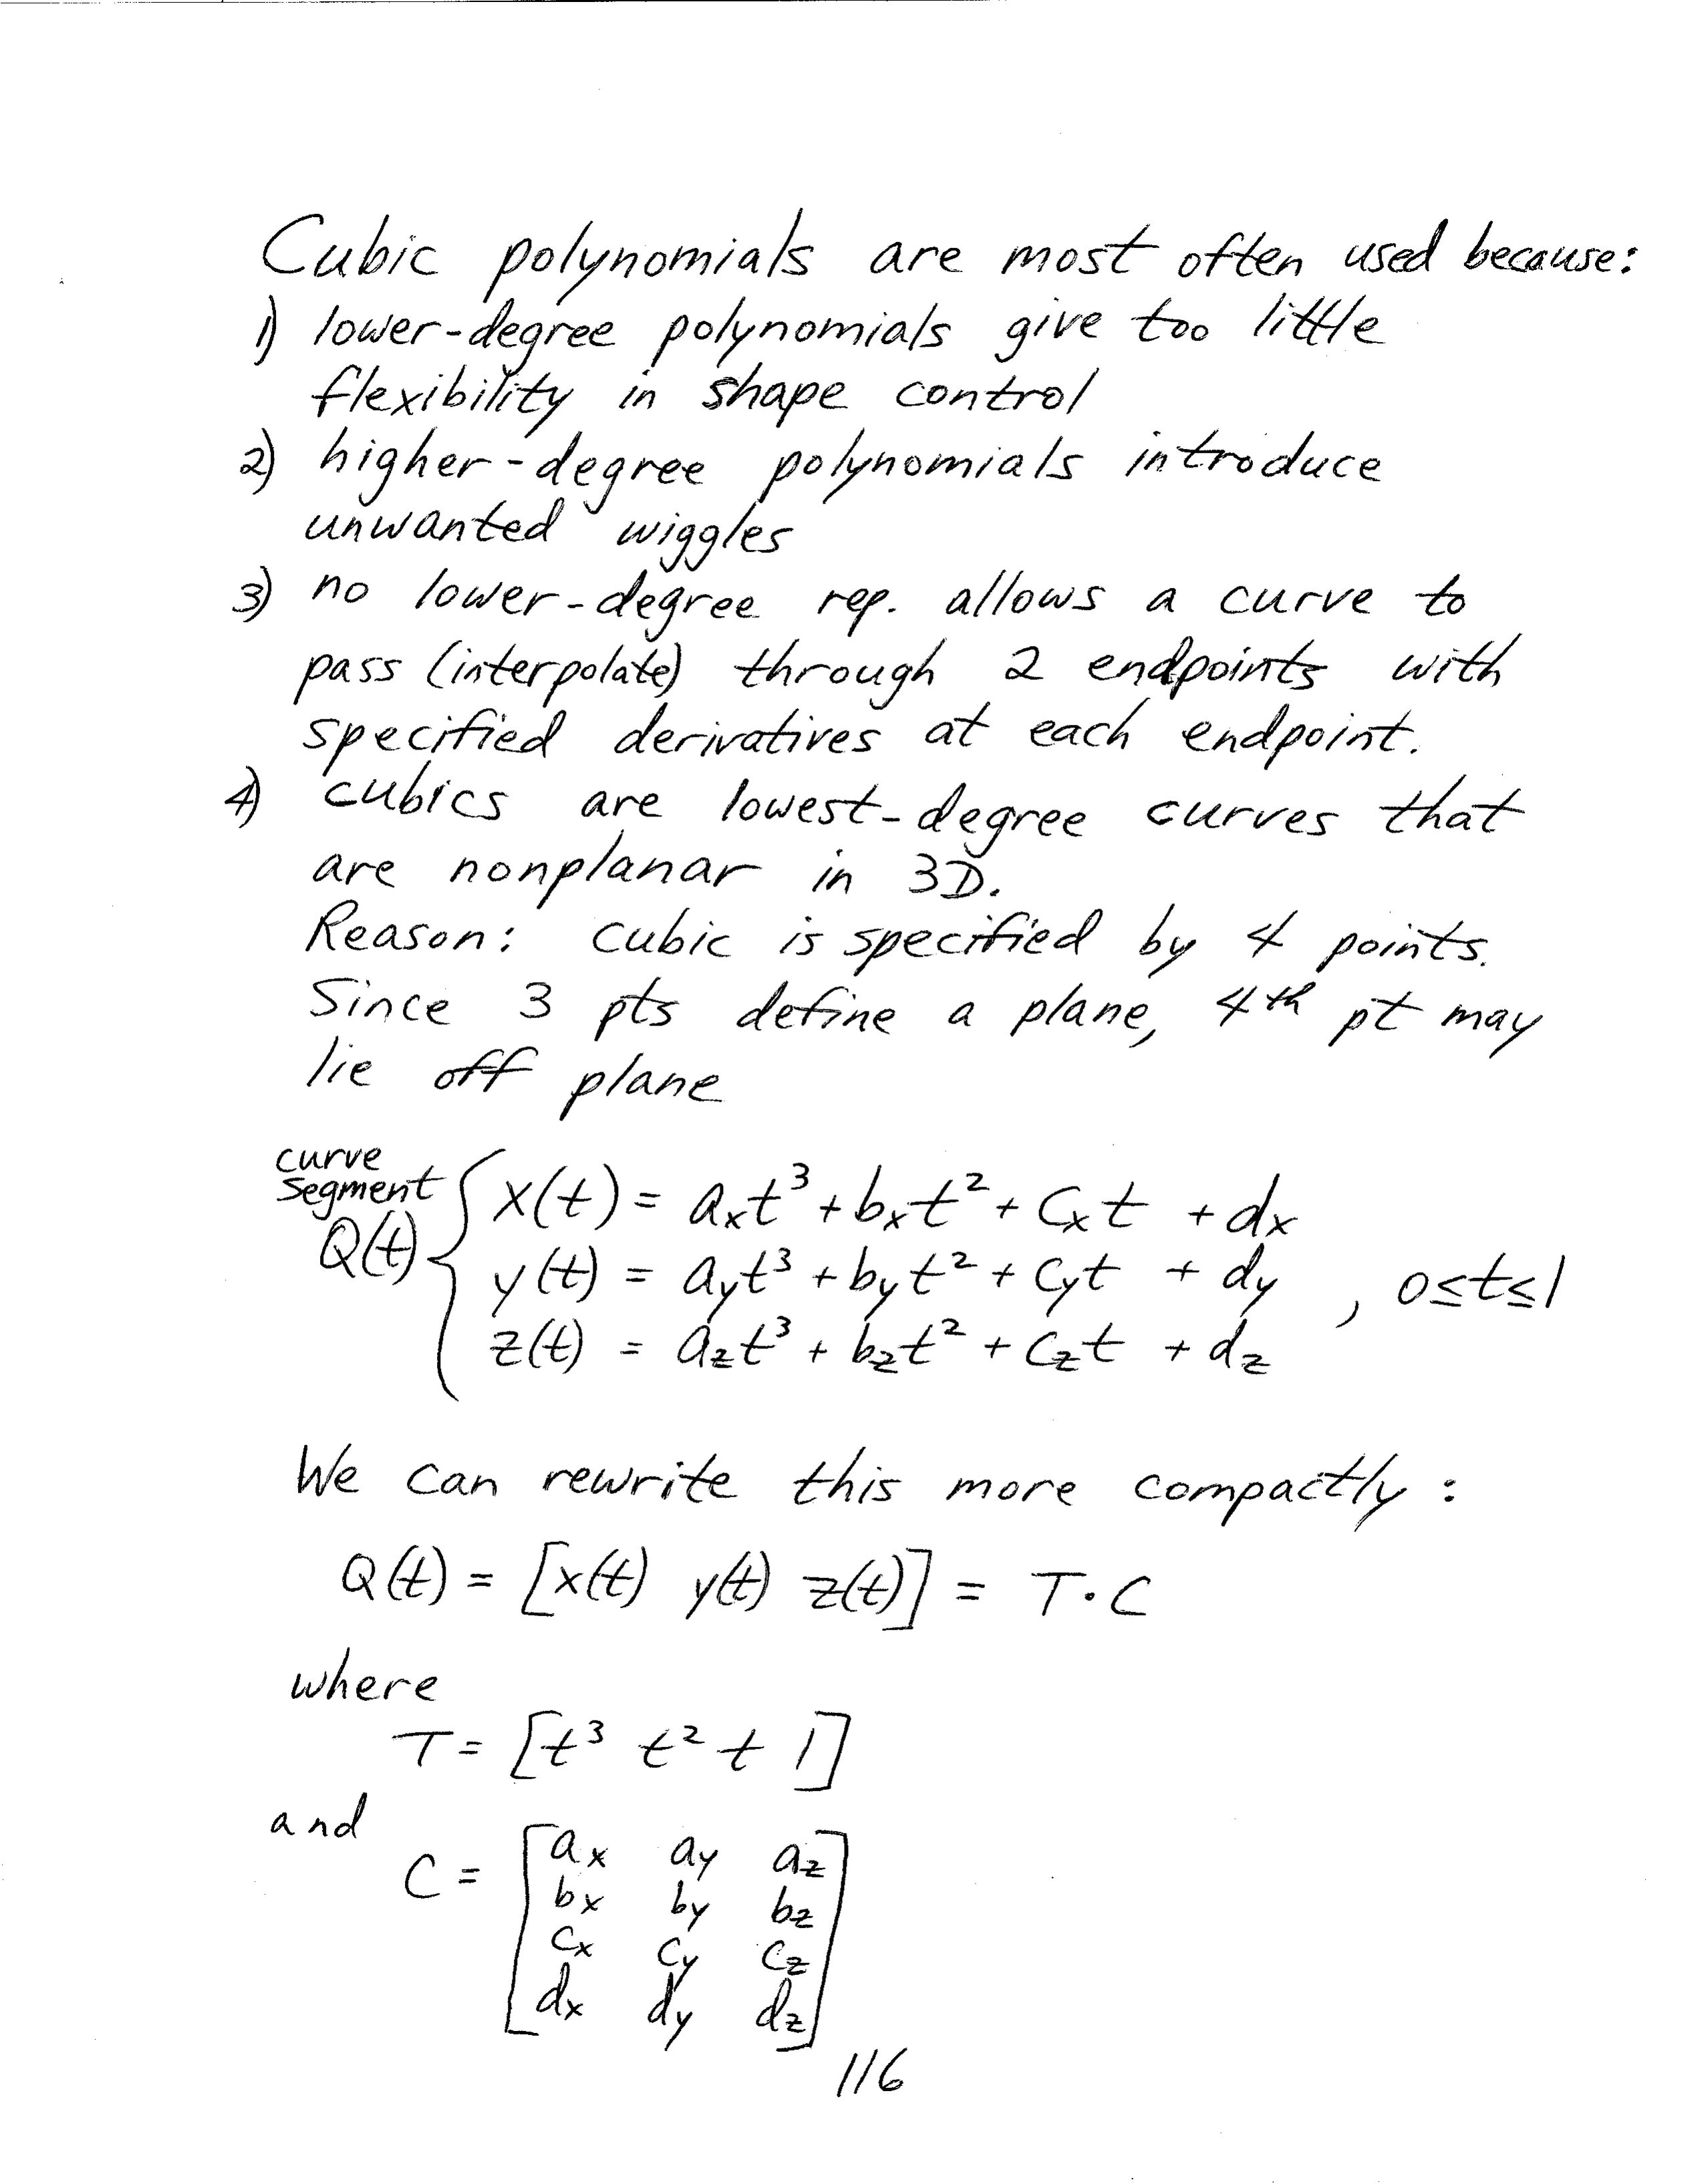 Cubic polynomials are most often used because:
1) lower-degree polynomials give too little
flexibility in shape control
2) higher-degree polynomials introduce
unwanted wiggles
3) no lower-degree rep. allows a curve to
pass (interpolate) through 2 endpoints with
specified derivatives at each endpoint.
4) cubics are lowest-degree curves that
are nonplanar in 3D.
Reason: cubic is specified by 4 points.
Since 3 pts define a plane, 4th pt may
lie off plane
curve
segment
Q(t) { x(t) = aₓt³ + bₓt² + cₓt + dₓ
y(t) = a_y t³ + b_y t² + c_y t + d_y , 0≤t≤1
z(t) = a_z t³ + b_z t² + c_z t + d_z
We can rewrite this more compactly:
Q(t) = [x(t) y(t) z(t)] = T·C
where
T = [t³ t² t 1]
and
C = [aₓ a_y a_z
bₓ b_y b_z
cₓ c_y c_z
dₓ d_y d_z]
116